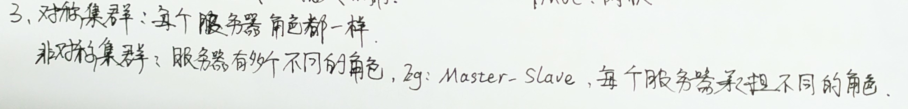 3、对称集群：每个服务器角色都一样.
非对称集群：服务器有多个不同的角色，Eg：Master-Slave，每个服务器承担不同的角色.